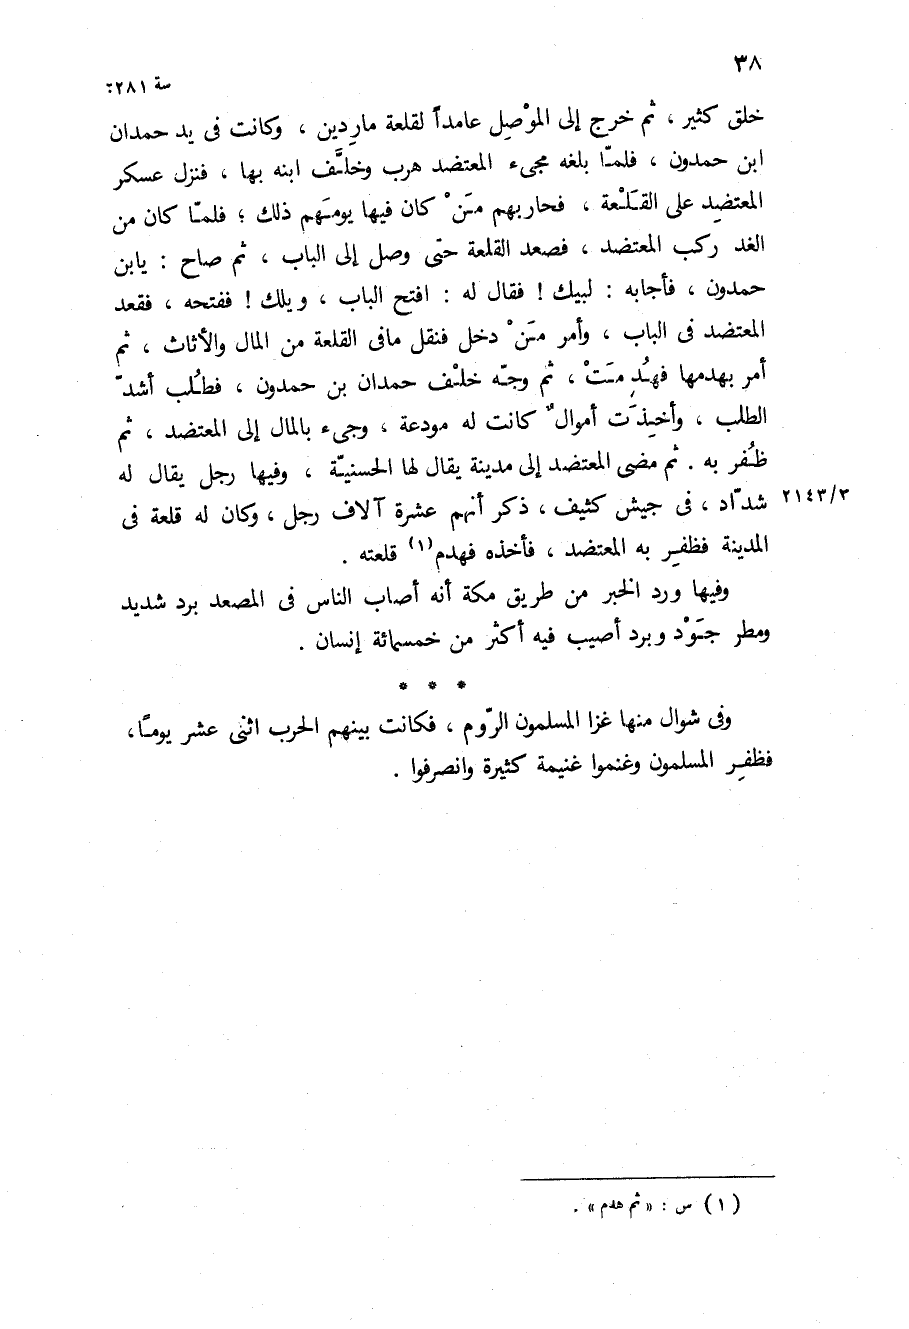 ٣٨
سنة ٢٨١
خلق كثير ، ثم خرج إلى الموْصِل عامداً لقلعة مارِدين ، وكانت فى يد حمدان
ابن حمدون ، فلمّا بلغه مجىء المعتضد هرب وخلَّف ابنه بها ، فنزل عسكر
المعتضِد على القَلْعة ، فحاربهم مَنْ كان فيها يومَهم ذلك ؛ فلمّا كان من
الغد ركب المعتضد ، فصعد القلعة حتّى وصل إلى الباب ، ثم صاح : يابن
حمدون ، فأجابه : لبيك ! فقال له : افتح الباب ، ويلك ! ففتحه ، فقعد
المعتضد فى الباب ، وأمر مَنْ دخل فنقل مافى القلعة من المال والأثاث ، ثم
أمر بهدمها فهُدِمَتْ ، ثم وجّه خلْف حمدان بن حمدون ، فطُلب أشدّ
الطلب ، وأخِذَت أموالٌ كانت له مودعة ، وجىء بالمال إلى المعتضد ، ثم
ظُفر به . ثم مضى المعتضد إلى مدينة يقال لها الحسنيّة ، وفيها رجل يقال له
٢١٤٣/٣ شدّاد ، فى جيش كثيف ، ذكر أنهم عشرة آلاف رجل ، وكان له قلعة فى
المدينة فظفِر به المعتضد ، فأخذه فهدم(١) قلعته .
وفيها ورد الخبر من طريق مكة أنه أصاب الناس فى المصعد برد شديد
ومطر جَوْد وبرد أصيب فيه أكثر من خمسمائة إنسان .
* * *
وفى شوال منها غزا المسلمون الرّوم ، فكانت بينهم الحرب اثنى عشر يوماً،
فظفِر المسلمون وغنموا غنيمة كثيرة وانصرفوا .
(١) س : « ثم هدم » .